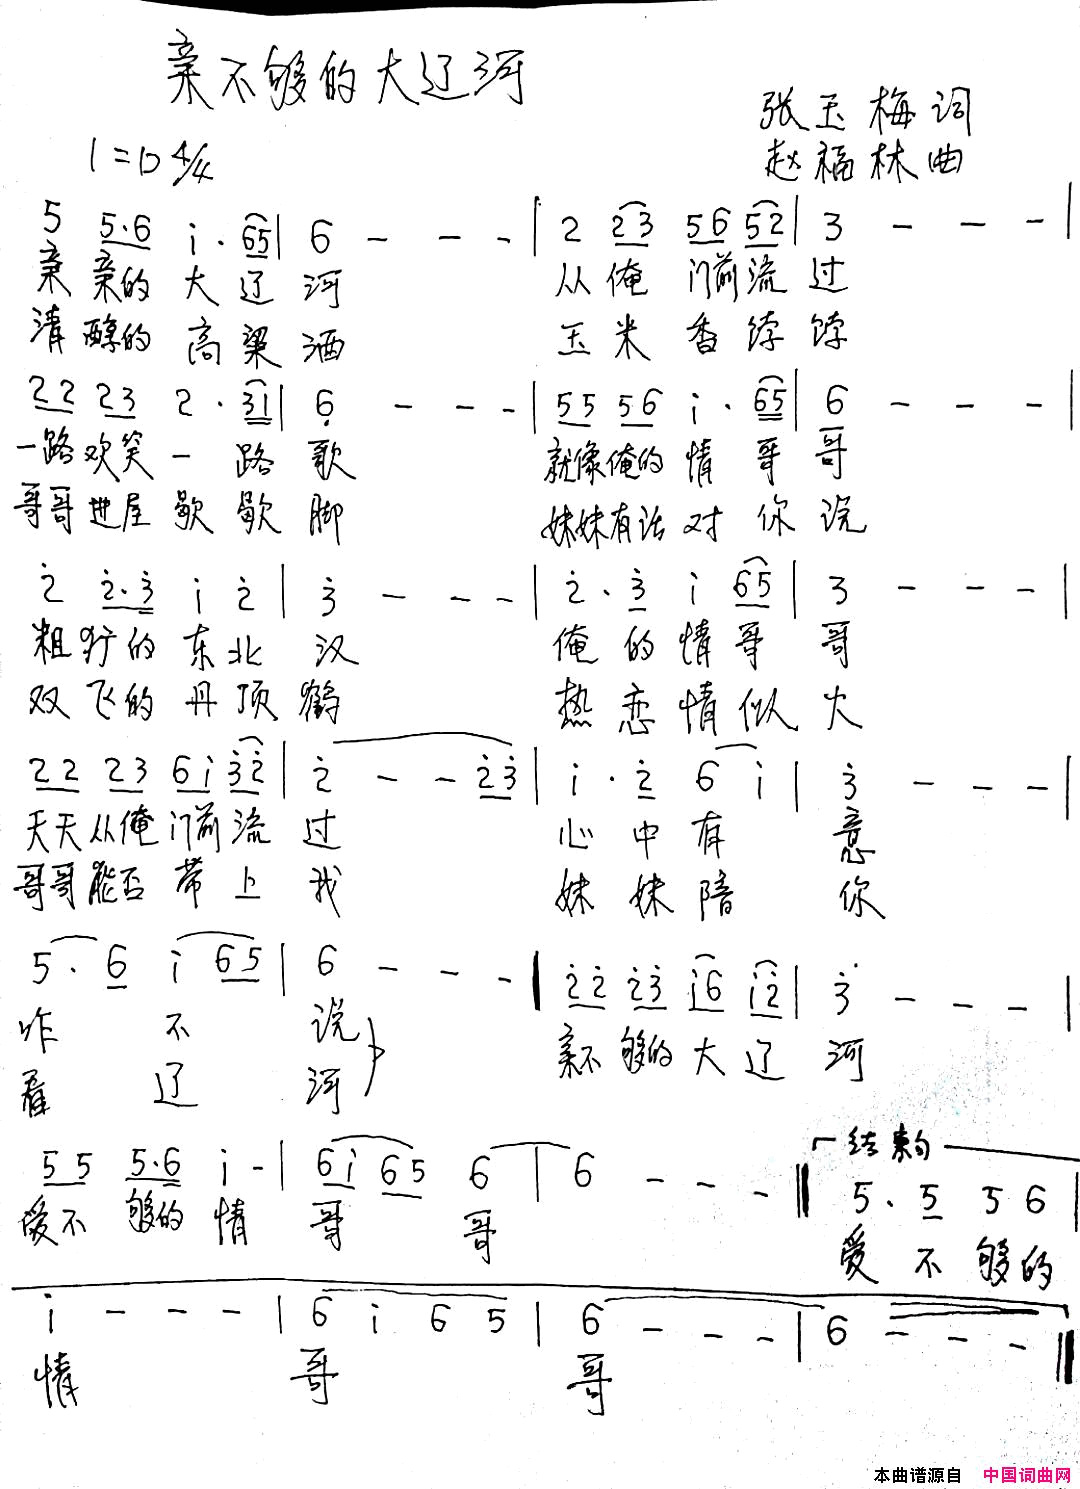 亲不够的大辽河
张玉梅词
1=D 4/4
赵福林曲
5 5·6 i·65| 6 - - - | 2 23 56 52| 3 - - - |
亲亲的大辽河 从俺门前流过
清醇的高粱酒 玉米香饽饽
22 23 2·31| 6 - - - | 55 56 i·65| 6 - - - |
一路欢笑一路歌 就像俺的情哥哥
哥哥进屋歇歇脚 妹妹有话对你说
2 2·3 i 2| 3 - - - | 2·3 i 65| 3 - - - |
粗犷的东北汉 俺的情哥哥
双飞的丹顶鹤 热恋情似火
22 23 6i 32| 2 - - 23| i·2 6 i| 3 - - - |
天天从俺门前流过 心中有意
哥哥能否带上我 妹妹陪你
5·6 i 65| 6 - - - | 22 23 i6 i2| 3 - - - |
咋不说 亲不够的大辽河
看辽河
结束句
55 5·6 i -| 6i 65 6 | 6 - - - || 5·5 5 6 |
爱不够的情哥哥 爱不够的
i - - - | 6 i 6 5 | 6 - - - | 6 - - - ||
情哥哥
本曲谱源自 中国词曲网